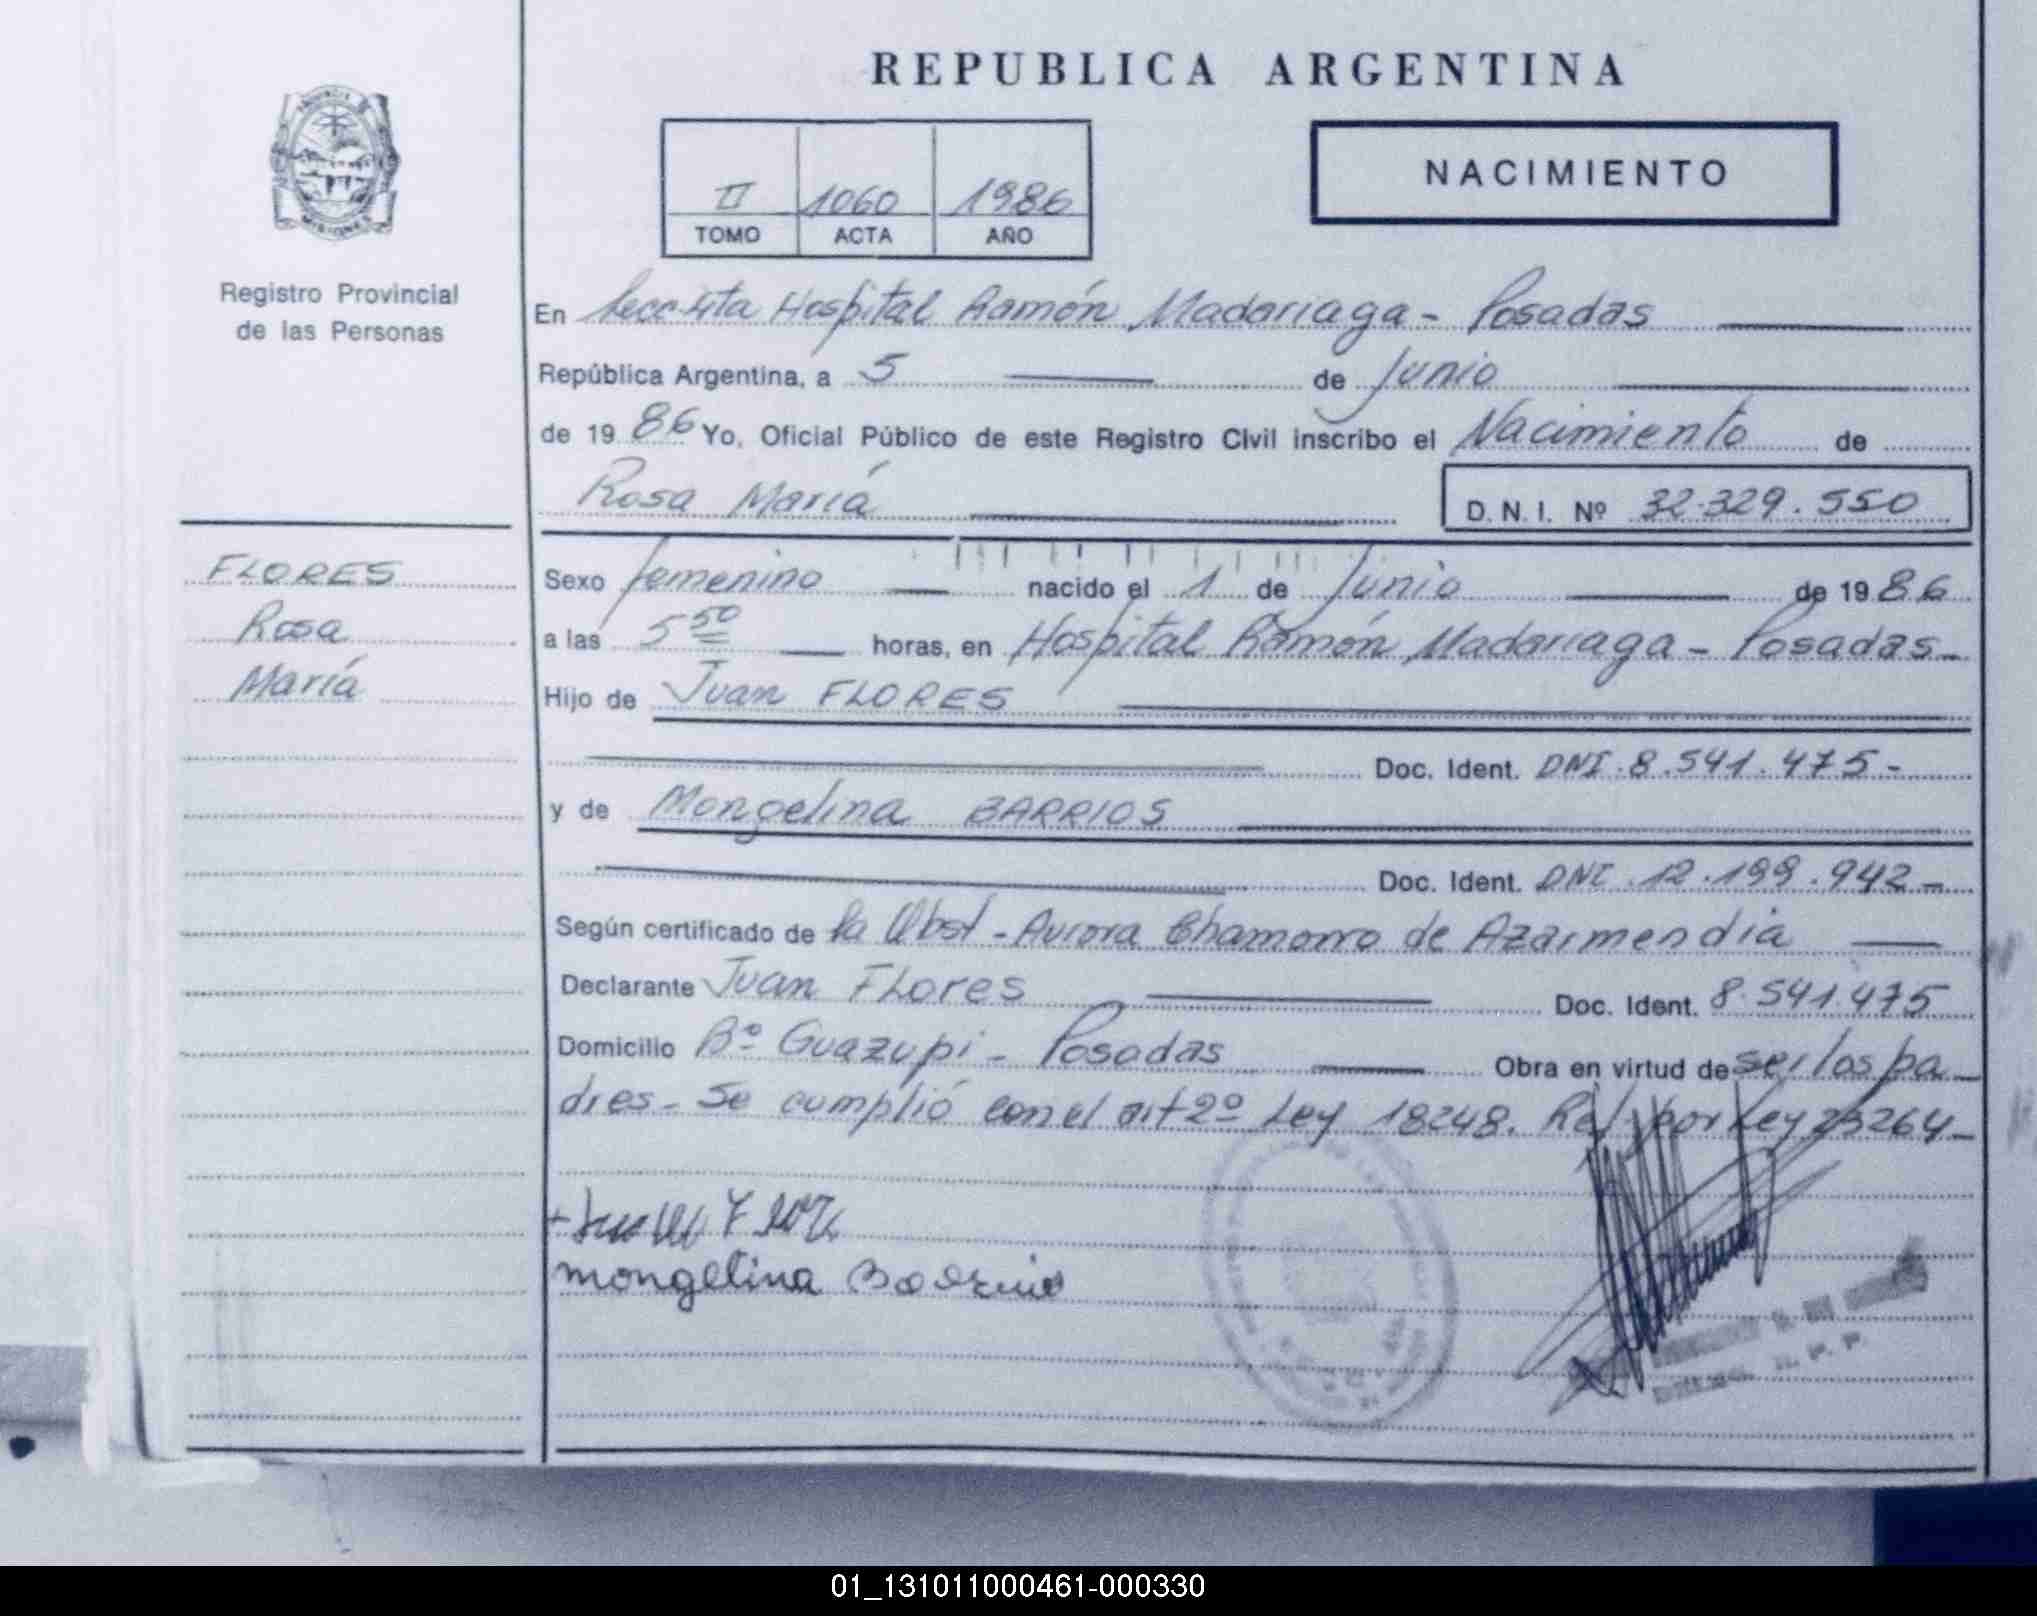 REPUBLICA ARGENTINA
II 1060 1986
TOMO ACTA AÑO
NACIMIENTO
Registro Provincial
de las Personas
FLORES
Rosa
María
En Secc 4ta Hospital Ramón Madariaga - Posadas
República Argentina, a 5 de Junio
de 19 86 Yo, Oficial Público de este Registro Civil inscribo el Nacimiento de
Rosa María D.N.I. Nº 32.329.550
Sexo femenino nacido el 1 de Junio de 19 86
a las 5 50 horas, en Hospital Ramón Madariaga - Posadas -
Hijo de Juan FLORES
Doc. Ident. DNI. 8.541.475 -
y de Mongelina BARRIOS
Doc. Ident. DNI. 12.199.942 -
Según certificado de la Obst - Aurora Chamorro de Azarmendia
Declarante Juan FLores Doc. Ident. 8.541.475
Domicilio Bº Guazupi - Posadas Obra en virtud de ser los pa
dres - Se cumplió con el art 2º Ley 18248. Ref. por Ley 23264 -
mongelina Barrios
R. P. P.
01_131011000461-000330